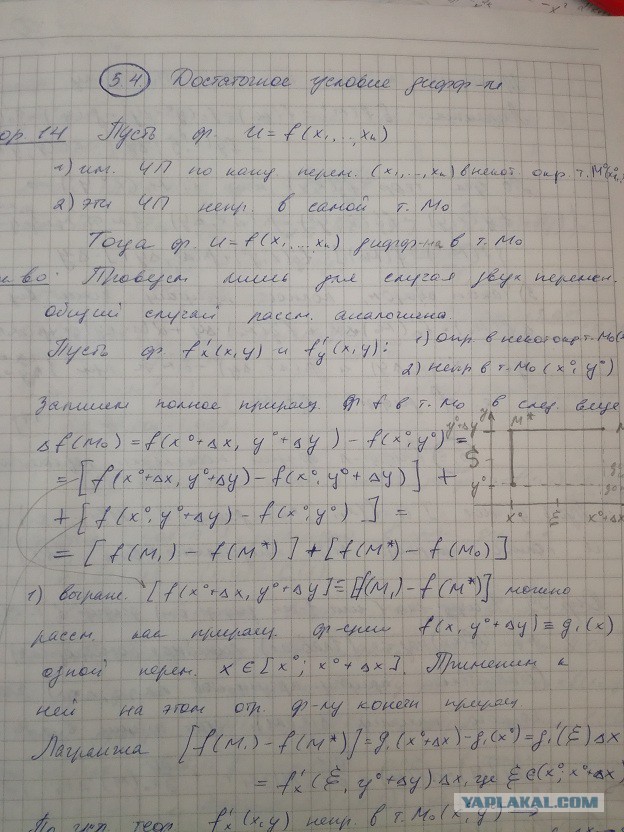 54 Достаточное условие дифф-ти
ор 14 Пусть ф. u = f(x₁,...,xₙ)
1) им. ЧП по кажд. перем. (x₁,...,xₙ) в некот. окр т. M⁰
2) эти ЧП непр. в самой т. M₀
Тогда ф. u = f(x₁,...,xₙ) дифф-ма в т. M₀
во: Проведем лишь для случая двух перемен.
общий случай рассм. аналогична.
Пусть ф f'ₓ(x,y) и f'ᵧ(x,y): 1) опр в некот окр т. M₀
2) непр в т. M₀(x⁰, y⁰)
Запишем полное приращ. ф f в т. M₀ в след. виде
Δf(M₀) = f(x⁰+Δx, y⁰+Δy) – f(x⁰, y⁰) =
= [f(x⁰+Δx, y⁰+Δy) – f(x⁰, y⁰+Δy)] +
+ [f(x⁰, y⁰+Δy) – f(x⁰, y⁰)] =
= [f(M₁) – f(M*)] + [f(M*) – f(M₀)]
y
y⁰+Δy M*
y⁰
x⁰ ξ x⁰+Δx
1) выраже. [f(x⁰+Δx, y⁰+Δy] = [f(M₁) – f(M*)] можно
рассм. как приращ. ф-ции f(x, y⁰+Δy) ≡ g₁(x)
одной перем. x ∈ [x⁰; x⁰+Δx]. Применим к
ней на этом отр. ф-лу конечн приращ
Лагранжа [f(M₁) – f(M*)] = g₁(x⁰+Δx) – g₁(x⁰) = g₁'(ξ)Δx
= f'ₓ(ξ, y⁰+Δy)Δx, где ξ ∈ (x⁰; x⁰+Δx)
По усл. теор f'ₓ(x,y) непр. в т. M₀(x,y)
YAPLAKAL.COM